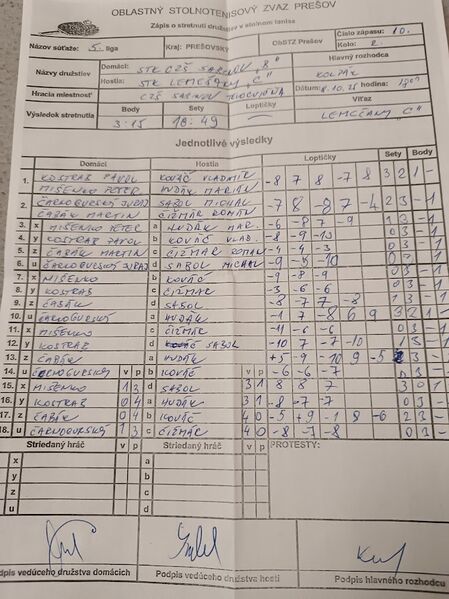 OBLASTNÝ STOLNOTENISOVÝ ZVÄZ PREŠOV
Zápis o stretnutí družstiev v stolnom tenise
Názov súťaže: 5. liga Kraj: PREŠOVSKÝ ObSTZ Prešov Číslo zápasu: 10.
Kolo: 2.
Názvy družstiev Domáci: STK CZŠ SABINOV "B" Hlavný rozhodca
Hostia: STK LEMEŠANY "C" KOLPÁK
Hracia miestnosť CZŠ SABINOV Dátum: hodina:
Výsledok stretnutia Body Sety Loptičky Víťaz
3:15 18:49 LEMEŠANY "C"
Jednotlivé výsledky
Domáci Hostia Loptičky Sety Body
1. KOSTRAB PAVOL KOVÁČ VLADIMÍR -8 7 8 -7 8 3 2 1 -
MIŠENKO PETER HUDÁK MARIÁN
2. ČARNOGURSKÝ JURAJ SABOL MICHAL -7 8 -8 7 -4 2 3 - 1
ČABÁK MARTIN ČIŽMÁR ROMAN
3. x MIŠENKO PETER a HUDÁK MAR. -6 -8 7 -9 1 3 - 1
4. y KOSTRAB PAVOL b KOVÁČ VLAD. -8 -9 -10 0 3 - 1
5. z ČABÁK MARTIN c ČIŽMÁR ROMAN -4 -4 -3 0 3 - 1
6. u ČARNOGURSKÝ JURAJ d SABOL MICHAL -9 -5 -10 0 3 - 1
7. x MIŠENKO b KOVÁČ -9 -8 -9 0 3 - 1
8. y KOSTRAB c ČIŽMÁR -3 -6 -6 0 3 - 1
9. z ČABÁK d SABOL -8 -7 7 -8 1 3 - 1
10. u ČARNOGURSKÝ a HUDÁK -10 7 -8 6 9 3 2 1 -
11. x MIŠENKO c ČIŽMÁR -11 -6 -6 0 3 - 1
12. y KOSTRAB d SABOL -10 7 -7 -10 1 3 - 1
13. z ČABÁK a HUDÁK +5 -9 -10 9 -5 2 3 - 1
14. u ČARNOGURSKÝ v p b KOVÁČ v p -6 -6 -7 0 3 - 1
15. x MIŠENKO 1 3 d SABOL 3 1 8 8 7 3 0 1
16. y KOSTRAB 0 4 a HUDÁK 3 1 -8 -7 -7 0 3 - 1
17. z ČABÁK 0 4 b KOVÁČ 4 0 -5 +9 -1 8 -6 2 3 - 1
18. u ČARNOGURSKÝ 1 3 c ČIŽMÁR 4 0 -8 -7 -8 0 3 - 1
Striedaný hráč v p Striedaný hráč v p PROTESTY:
x a
y b
z c
u d
Podpis vedúceho družstva domácich Podpis vedúceho družstva hostí Podpis hlavného rozhodcu